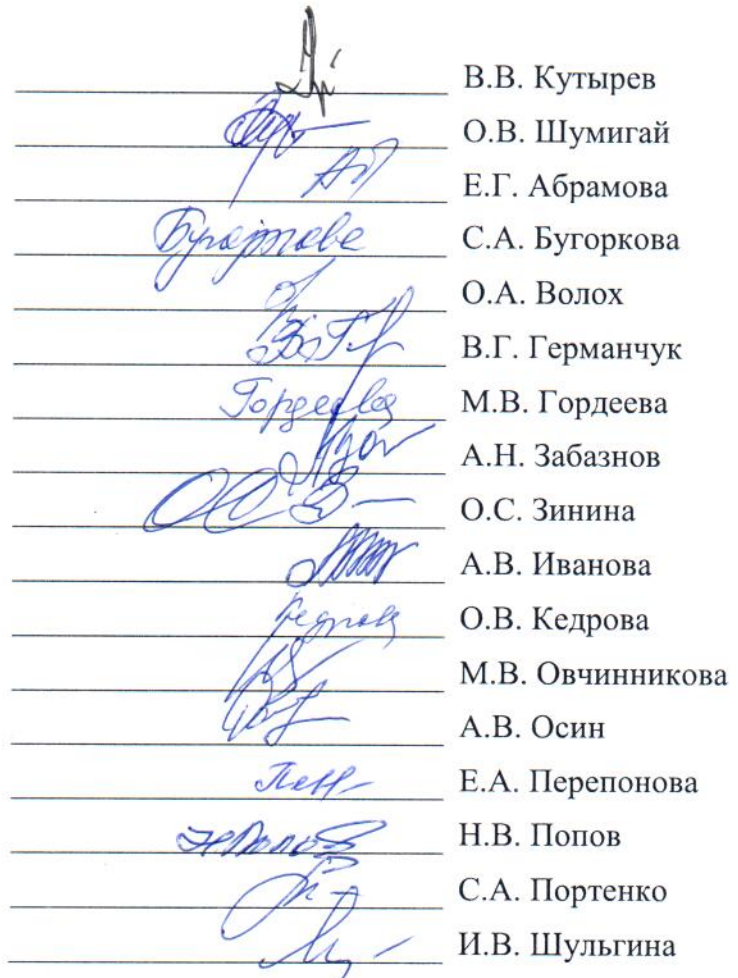 В.В. Кутырев
О.В. Шумигай
Е.Г. Абрамова
Бугоркова С.А. Бугоркова
О.А. Волох
В.Г. Германчук
Гордеева М.В. Гордеева
А.Н. Забазнов
О.С. Зинина
А.В. Иванова
Кедрова О.В. Кедрова
М.В. Овчинникова
А.В. Осин
Е.А. Перепонова
Н.В. Попов
С.А. Портенко
И.В. Шульгина